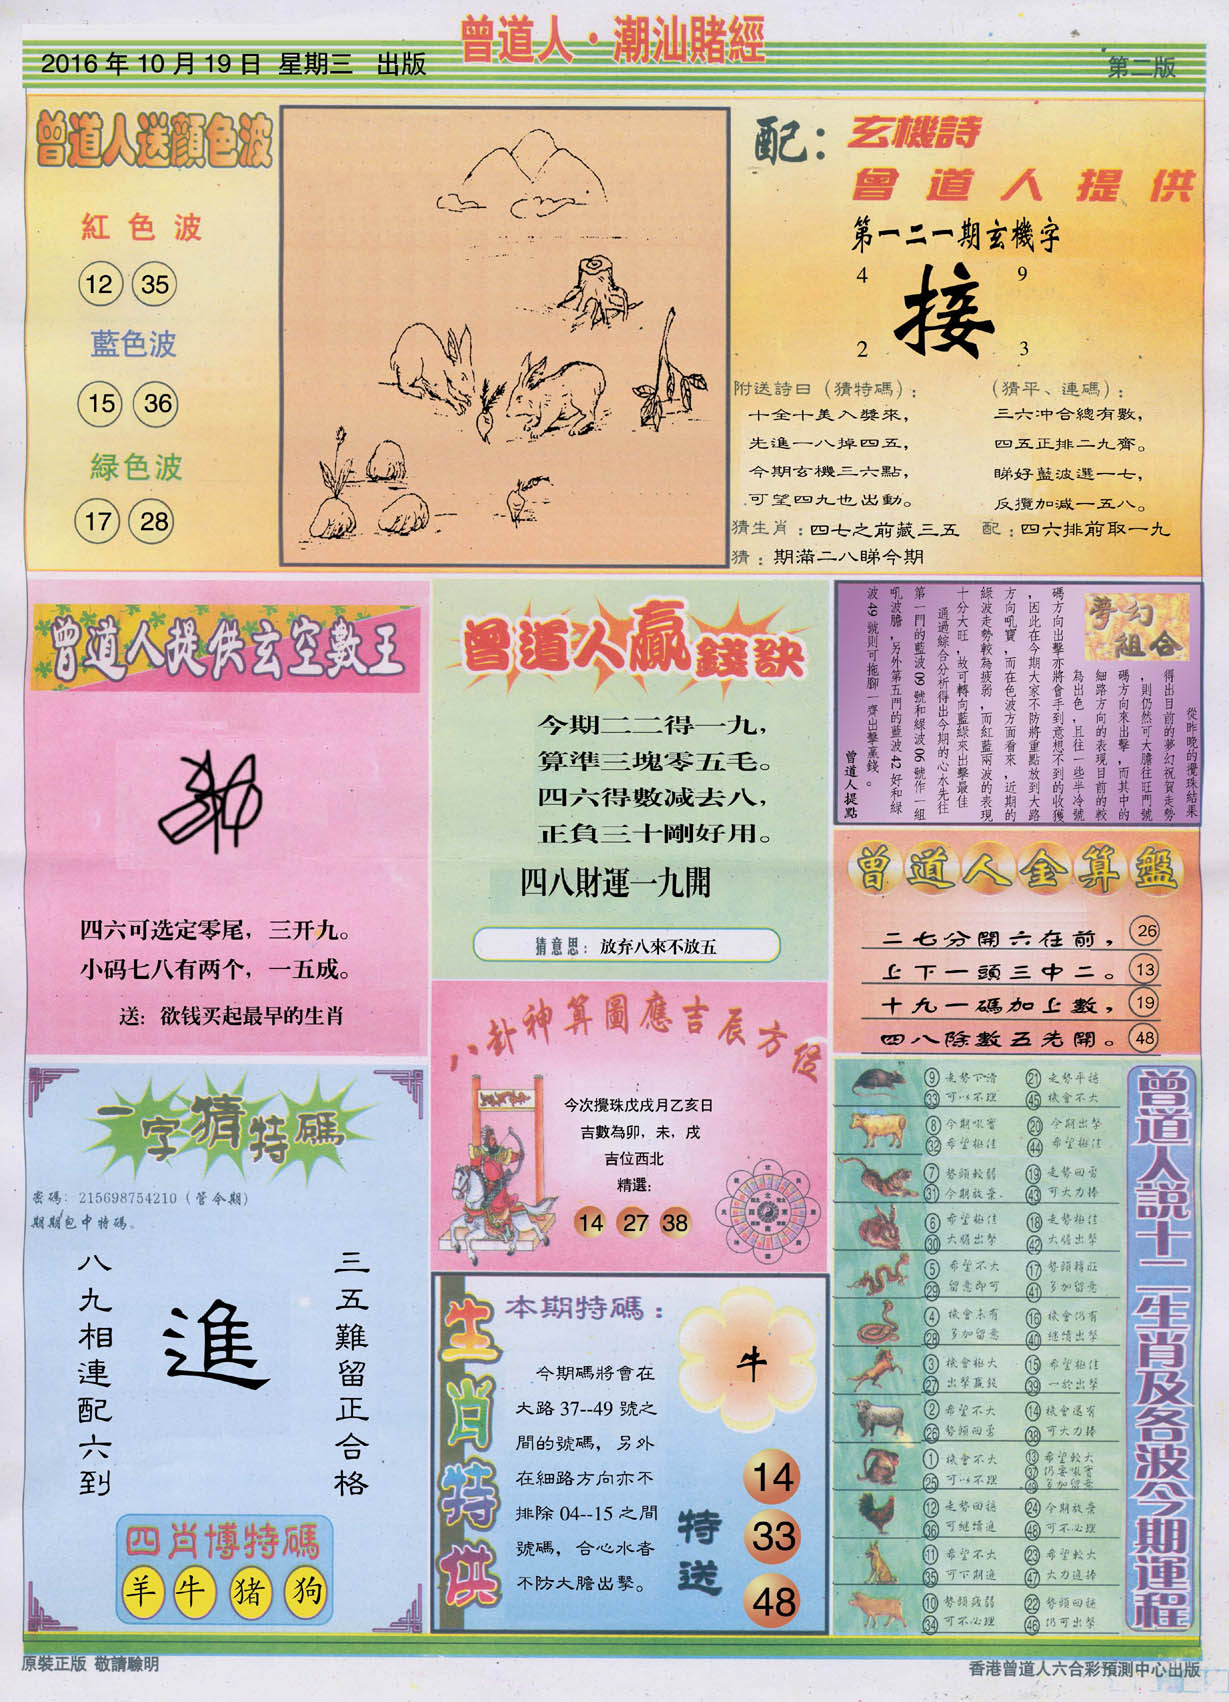 曾道人·潮汕賭經
2016 年 10 月 19 日 星期三 出版
第二版
曾道人送顏色波
紅色波
12 35
藍色波
15 36
緑色波
17 28
配：玄機詩
曾道人提供
第一二一期玄機字
4 9
接
2 3
附送詩日（猜特碼）：
十全十美入獎來，
先進一八掉四五，
今期玄機三六點，
可望四九也出動。
（猜平、連碼）：
三六冲合總有數，
四五正排二九齊。
睇好藍波選一七，
反攬加减一五八。
猜生肖：四七之前藏三五
配：四六排前取一九
猜：期滿二八睇今期
曾道人提供玄空數王
四六可选定零尾，三开九。
小码七八有两个，一五成。
送：欲钱买起最早的生肖
曾道人贏錢訣
今期二二得一九，
算準三塊零五毛。
四六得數减去八，
正負三十剛好用。
四八財運一九開
猜意思：放弃八來不放五
夢幻
組合
從昨晚的攪珠結果
得出目前的夢幻祝賀走勢
，則仍然可大膽往旺門號
碼方向來出擊，而其中的
細路方向的表現目前的較
為出色，且往一些半冷號
碼方向出擊亦將會手到意想不到的收獲
，因此在今期大家不防將重點放到大路
方向吼寶，而在色波方面看來，近期的
綠波走勢較為疲弱，而紅藍兩波的表現
十分大旺，故可轉向藍綠來出擊最佳
通過綜合分析得出今期的心水先往
第一門的藍波 09 號和綠波 06 號作一組
吼波膽，另外第五門的藍波 42 好和綠
波 49 號則可拖腳一齊出擊贏錢。
曾道人提點
曾道人金算盤
二七分開六在前， 26
上下一頭三中二。 13
十九一碼加上數， 19
四八除數五先開。 48
八卦神算圖應吉辰方位
今次攪珠戊戌月乙亥日
吉數為卯，未，戌
吉位西北
精選：
14 27 38
一字猜特碼
密碼：215698754210（管今期）
期期包中特碼。
八九相連配六到
進
三五難留正合格
四肖博特碼
羊 牛 猪 狗
生肖特供
本期特碼：
今期碼將會在
大路 37--49 號之
間的號碼，另外
在細路方向亦不
排除 04--15 之間
號碼，合心水者
不防大膽出擊。
牛
特送
14
33
48
曾道人説十二生肖及各波今期運程
9 走勢下滑 21 走勢平穩
33 可以不理 45 機會不大
8 今期吼實 20 今期出擊
32 希望極佳 44 希望極佳
7 勢頭較弱 19 走勢回勇
31 今期放棄. 43 可大力捧
6 希望極佳 18 走勢極佳
30 大膽出擊 42 大膽出擊
5 希望不大 17 勢頭轉旺
29 留意即可 41 多加留意
4 機會未有 16 機會仍有
28 多加留意 40 繼續出擊
3 機會極大 15 希望極佳
27 出擊贏錢 39 一於出擊
2 希望不大 14 機會還有
26 勢頭回勇 38 可大力捧
1 機會不大 13 希望較大
25 可以不理 37 仍要吼實
49 多加留意
12 走勢回穩 24 今期放棄
36 可繼續追 48 可不必理
11 希望不大 23 希望較大
35 可下期追 47 大力追捧
10 勢頭疲弱 22 勢頭回穩
34 可不必理 46 仍可出擊
原裝正版 敬請驗明
香港曾道人六合彩預測中心出版